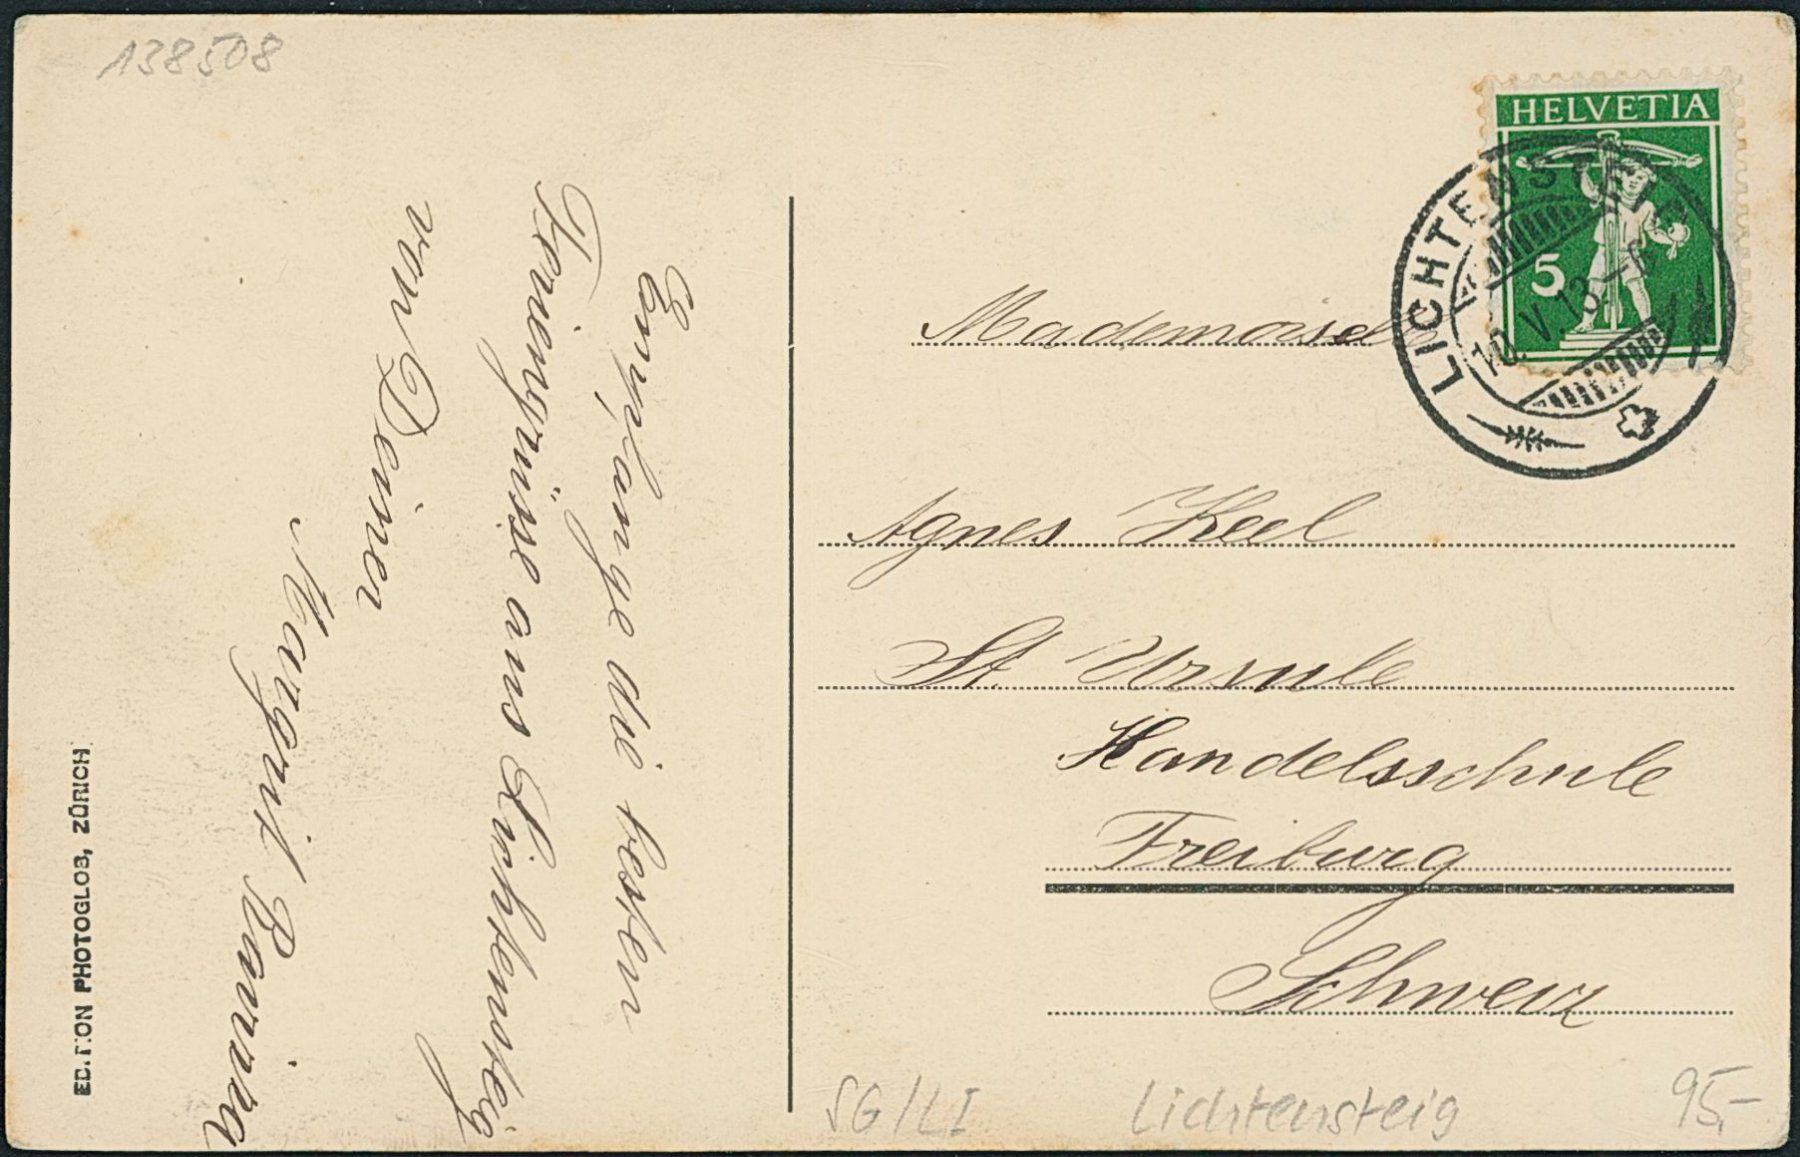 138508
Empfange die besten
Feriengrüsse aus Lichtensteig
von Deiner
Margrit
EDITION PHOTOGLOB, ZÜRICH
HELVETIA
5
LICHTENSTEIG
10.V.13.-6
Mademoiselle
Agnes Keel
St. Ursule
Handelsschule
Freiburg
Schweiz
SG/LI
Lichtensteig
95.-